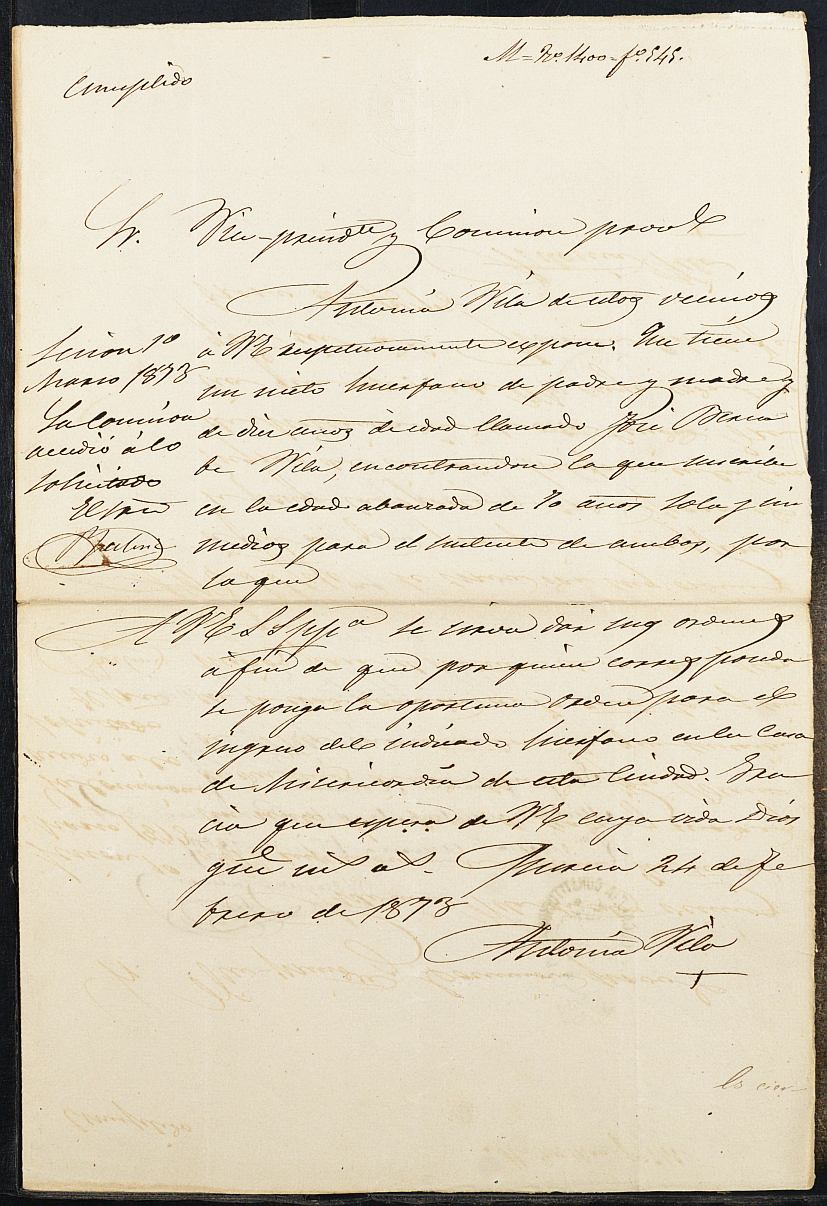 M = No. 1400 = fo. 545.
Cumplido
Sr. Vice-presidte y Comision provl
Antonia Vila de estos vecinos
á VE respetuosamente espone: Que tiene
un nieto huerfano de padre y madre y
de diez años de edad llamado José
de Vila, encontrandose la que suscribe
en la edad abanzada de 70 años sola y sin
medios para el sustento de ambos, por
lo que
A VE Ssppca se sirva dar sus ordenes
á fin de que por quien corresponda
se ponga la oportuna orden para el
ingreso del indicado huerfano en la Casa
de Misericordia de esta Ciudad. Gra
cia que espera de VE cuya vida Dios
gue ms as. Murcia 24 de Fe
brero de 1873
Antonia Vila
+
Sesion 1o
Marzo 1873
La Comision
accedió á lo
solicitado
El Srio
Es cier